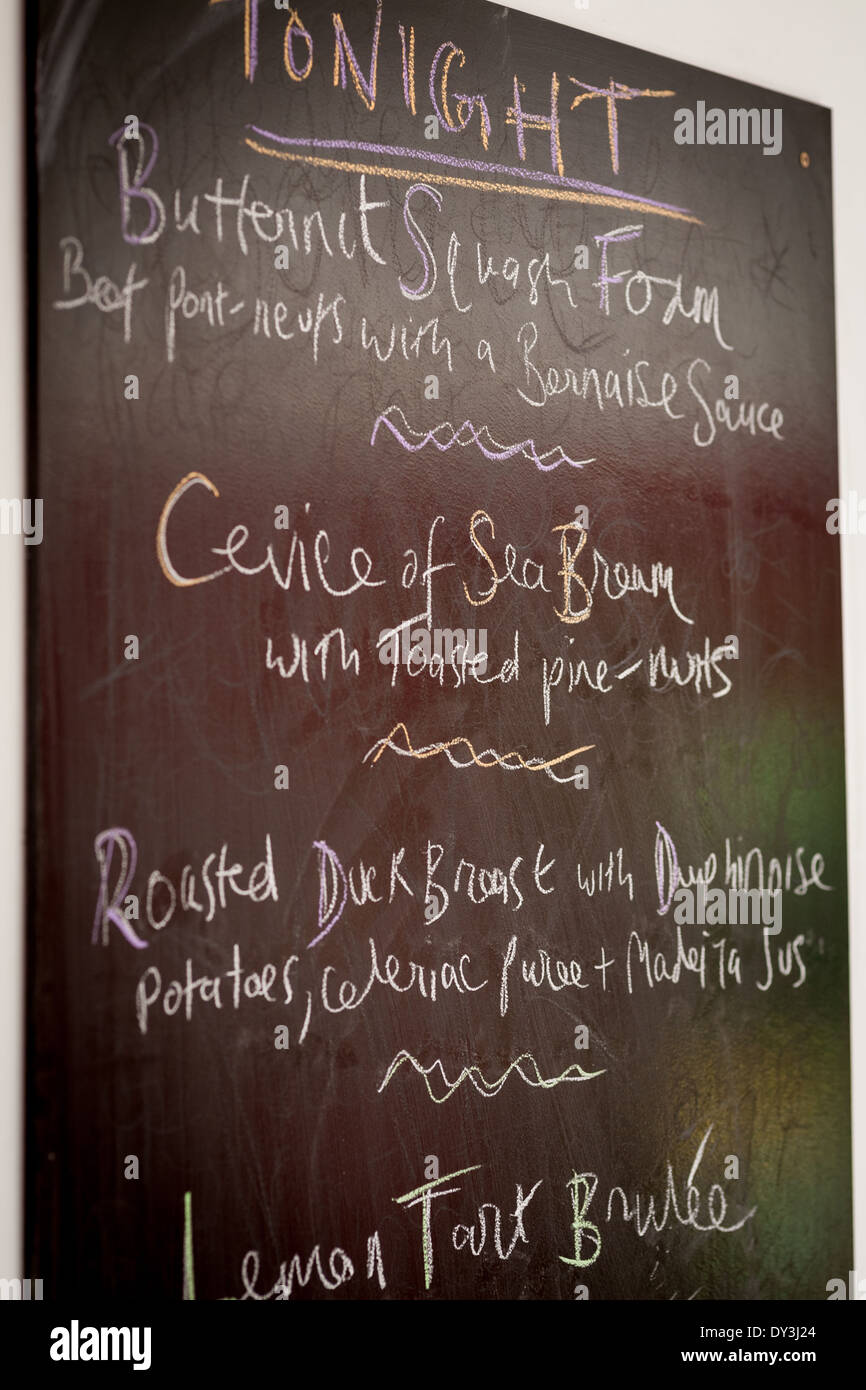 TONIGHT
Butternut Squash Foam
Beef pont-neufs with a Bernaise Sauce
Cevice of Sea Bream
with Toasted pine-nuts
Roasted Duck Breast with Dauphinoise
potatoes, celeriac puree + Madeira Jus
Lemon Tart Brulée
alamy
Image ID: DY3J24
www.alamy.com